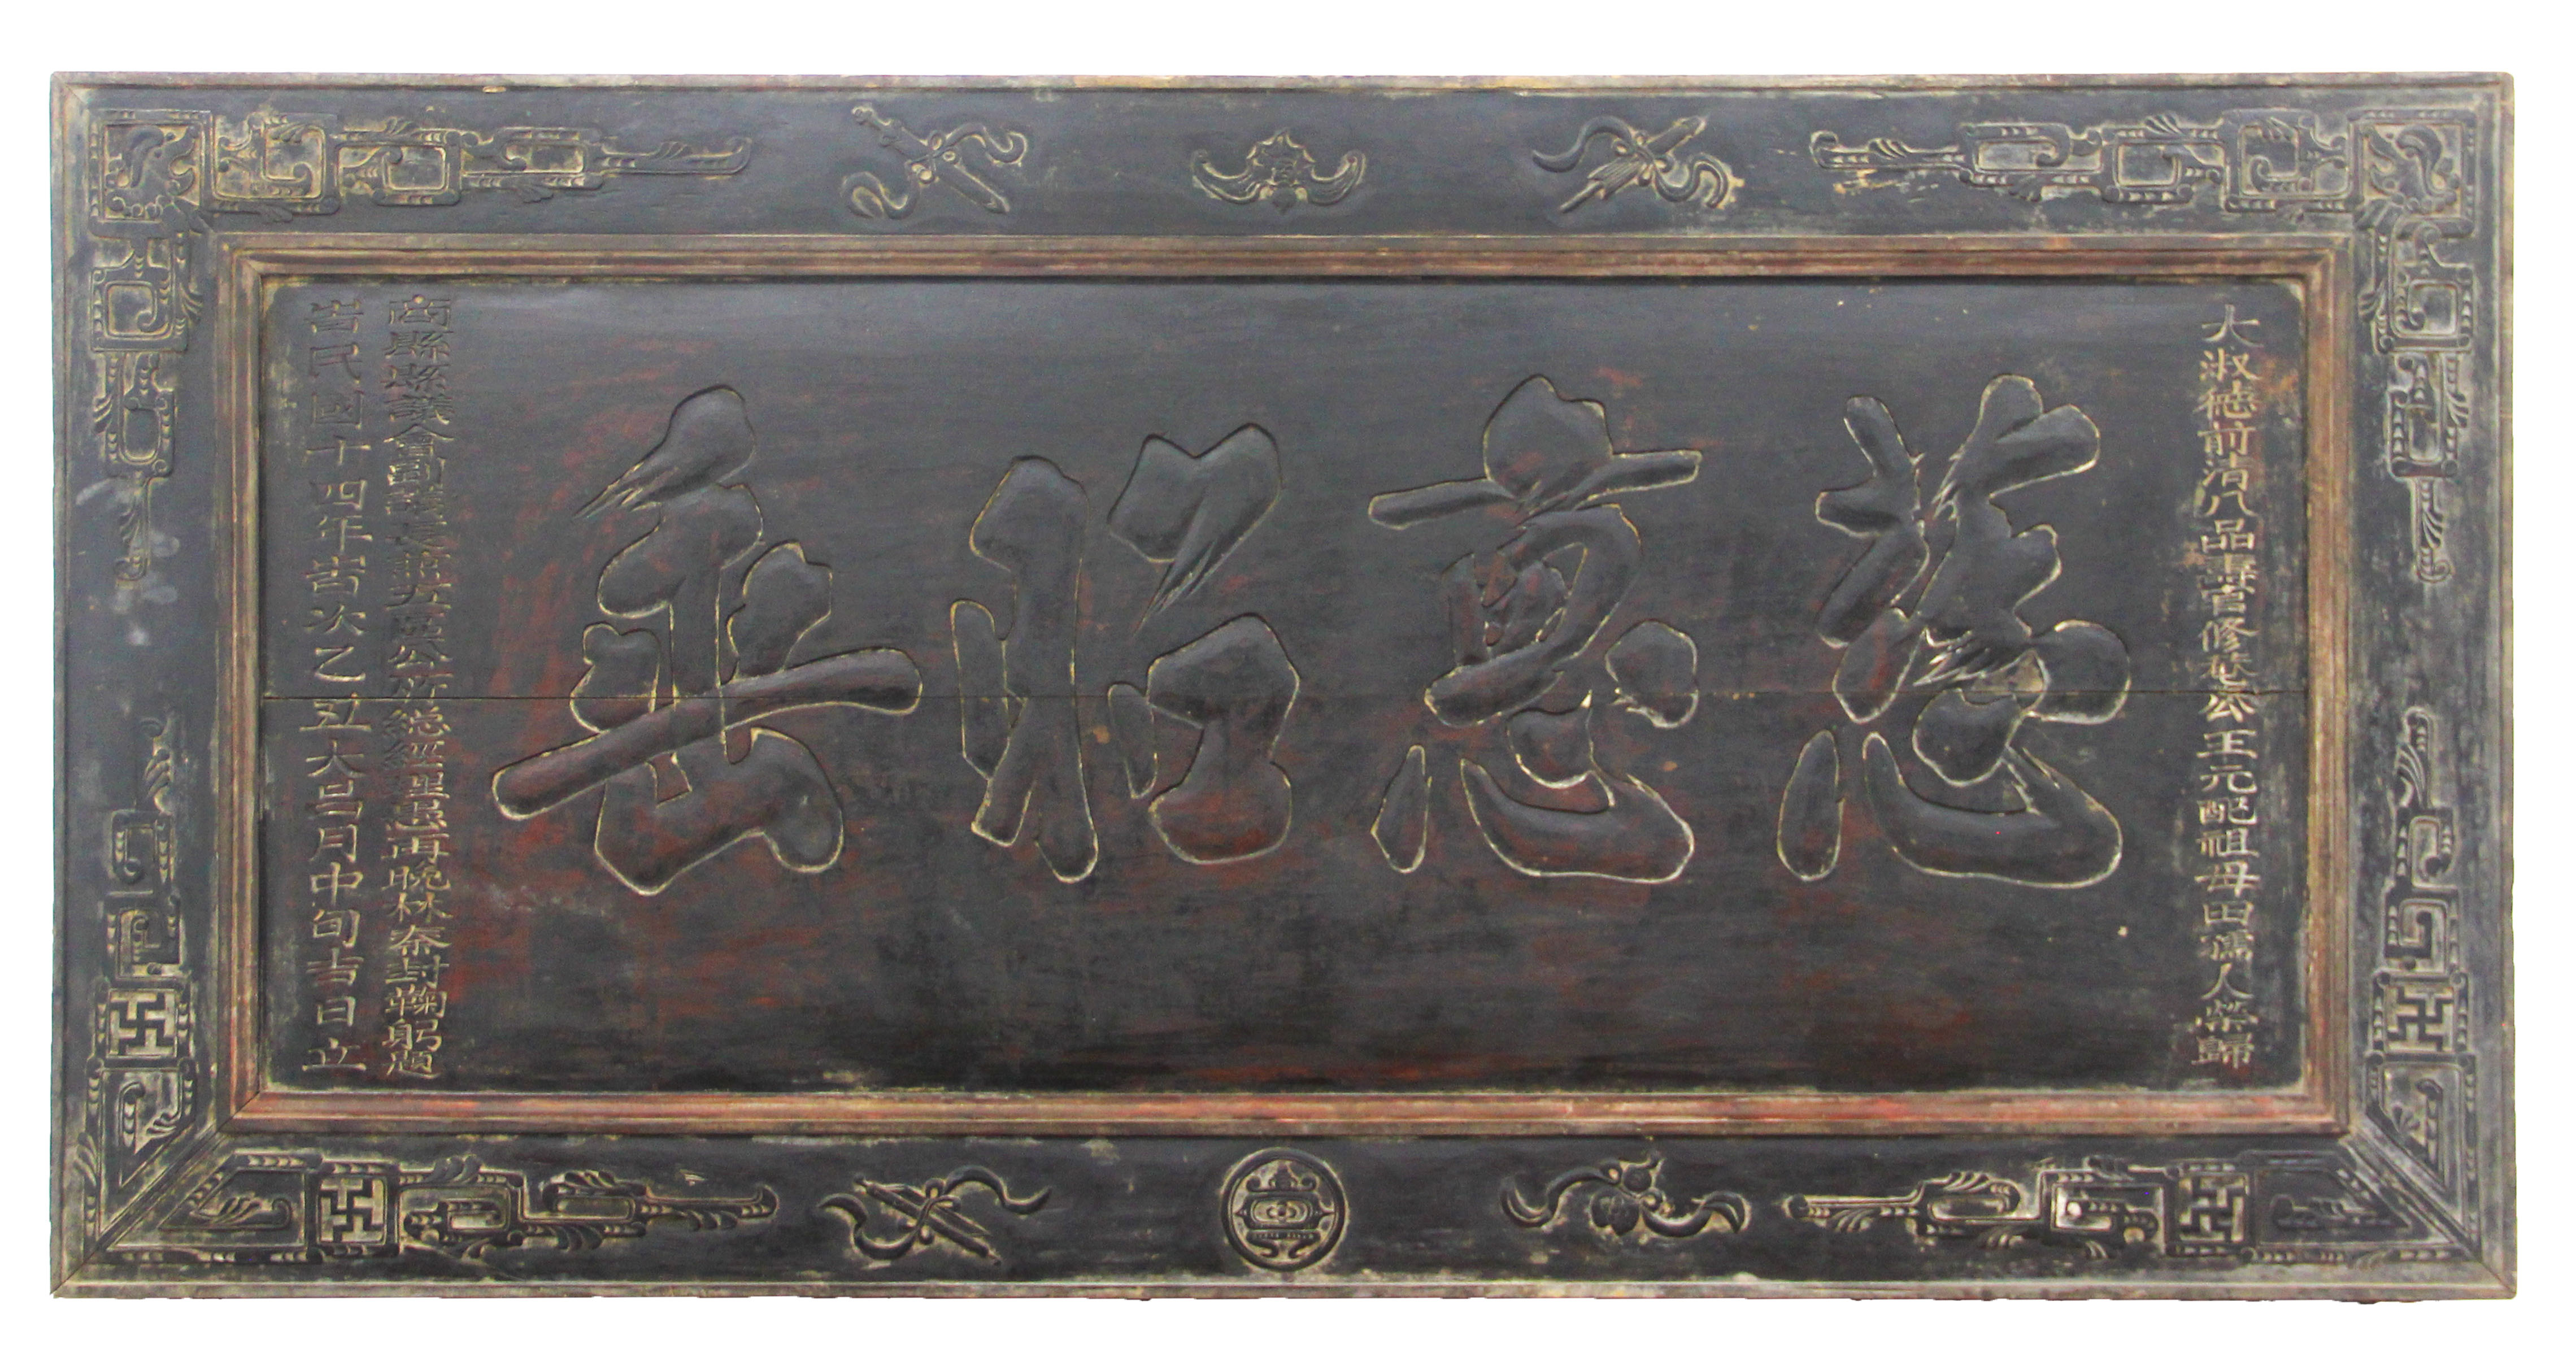 大淑德前清八品壽官修巷公王元配祖母田孺人榮歸
慈惠昭垂
商縣縣議會副議長兼五區公所総經理愚再晚林泰封鞠躬題
旹民國十四年歲次乙丑大呂月中旬吉日立